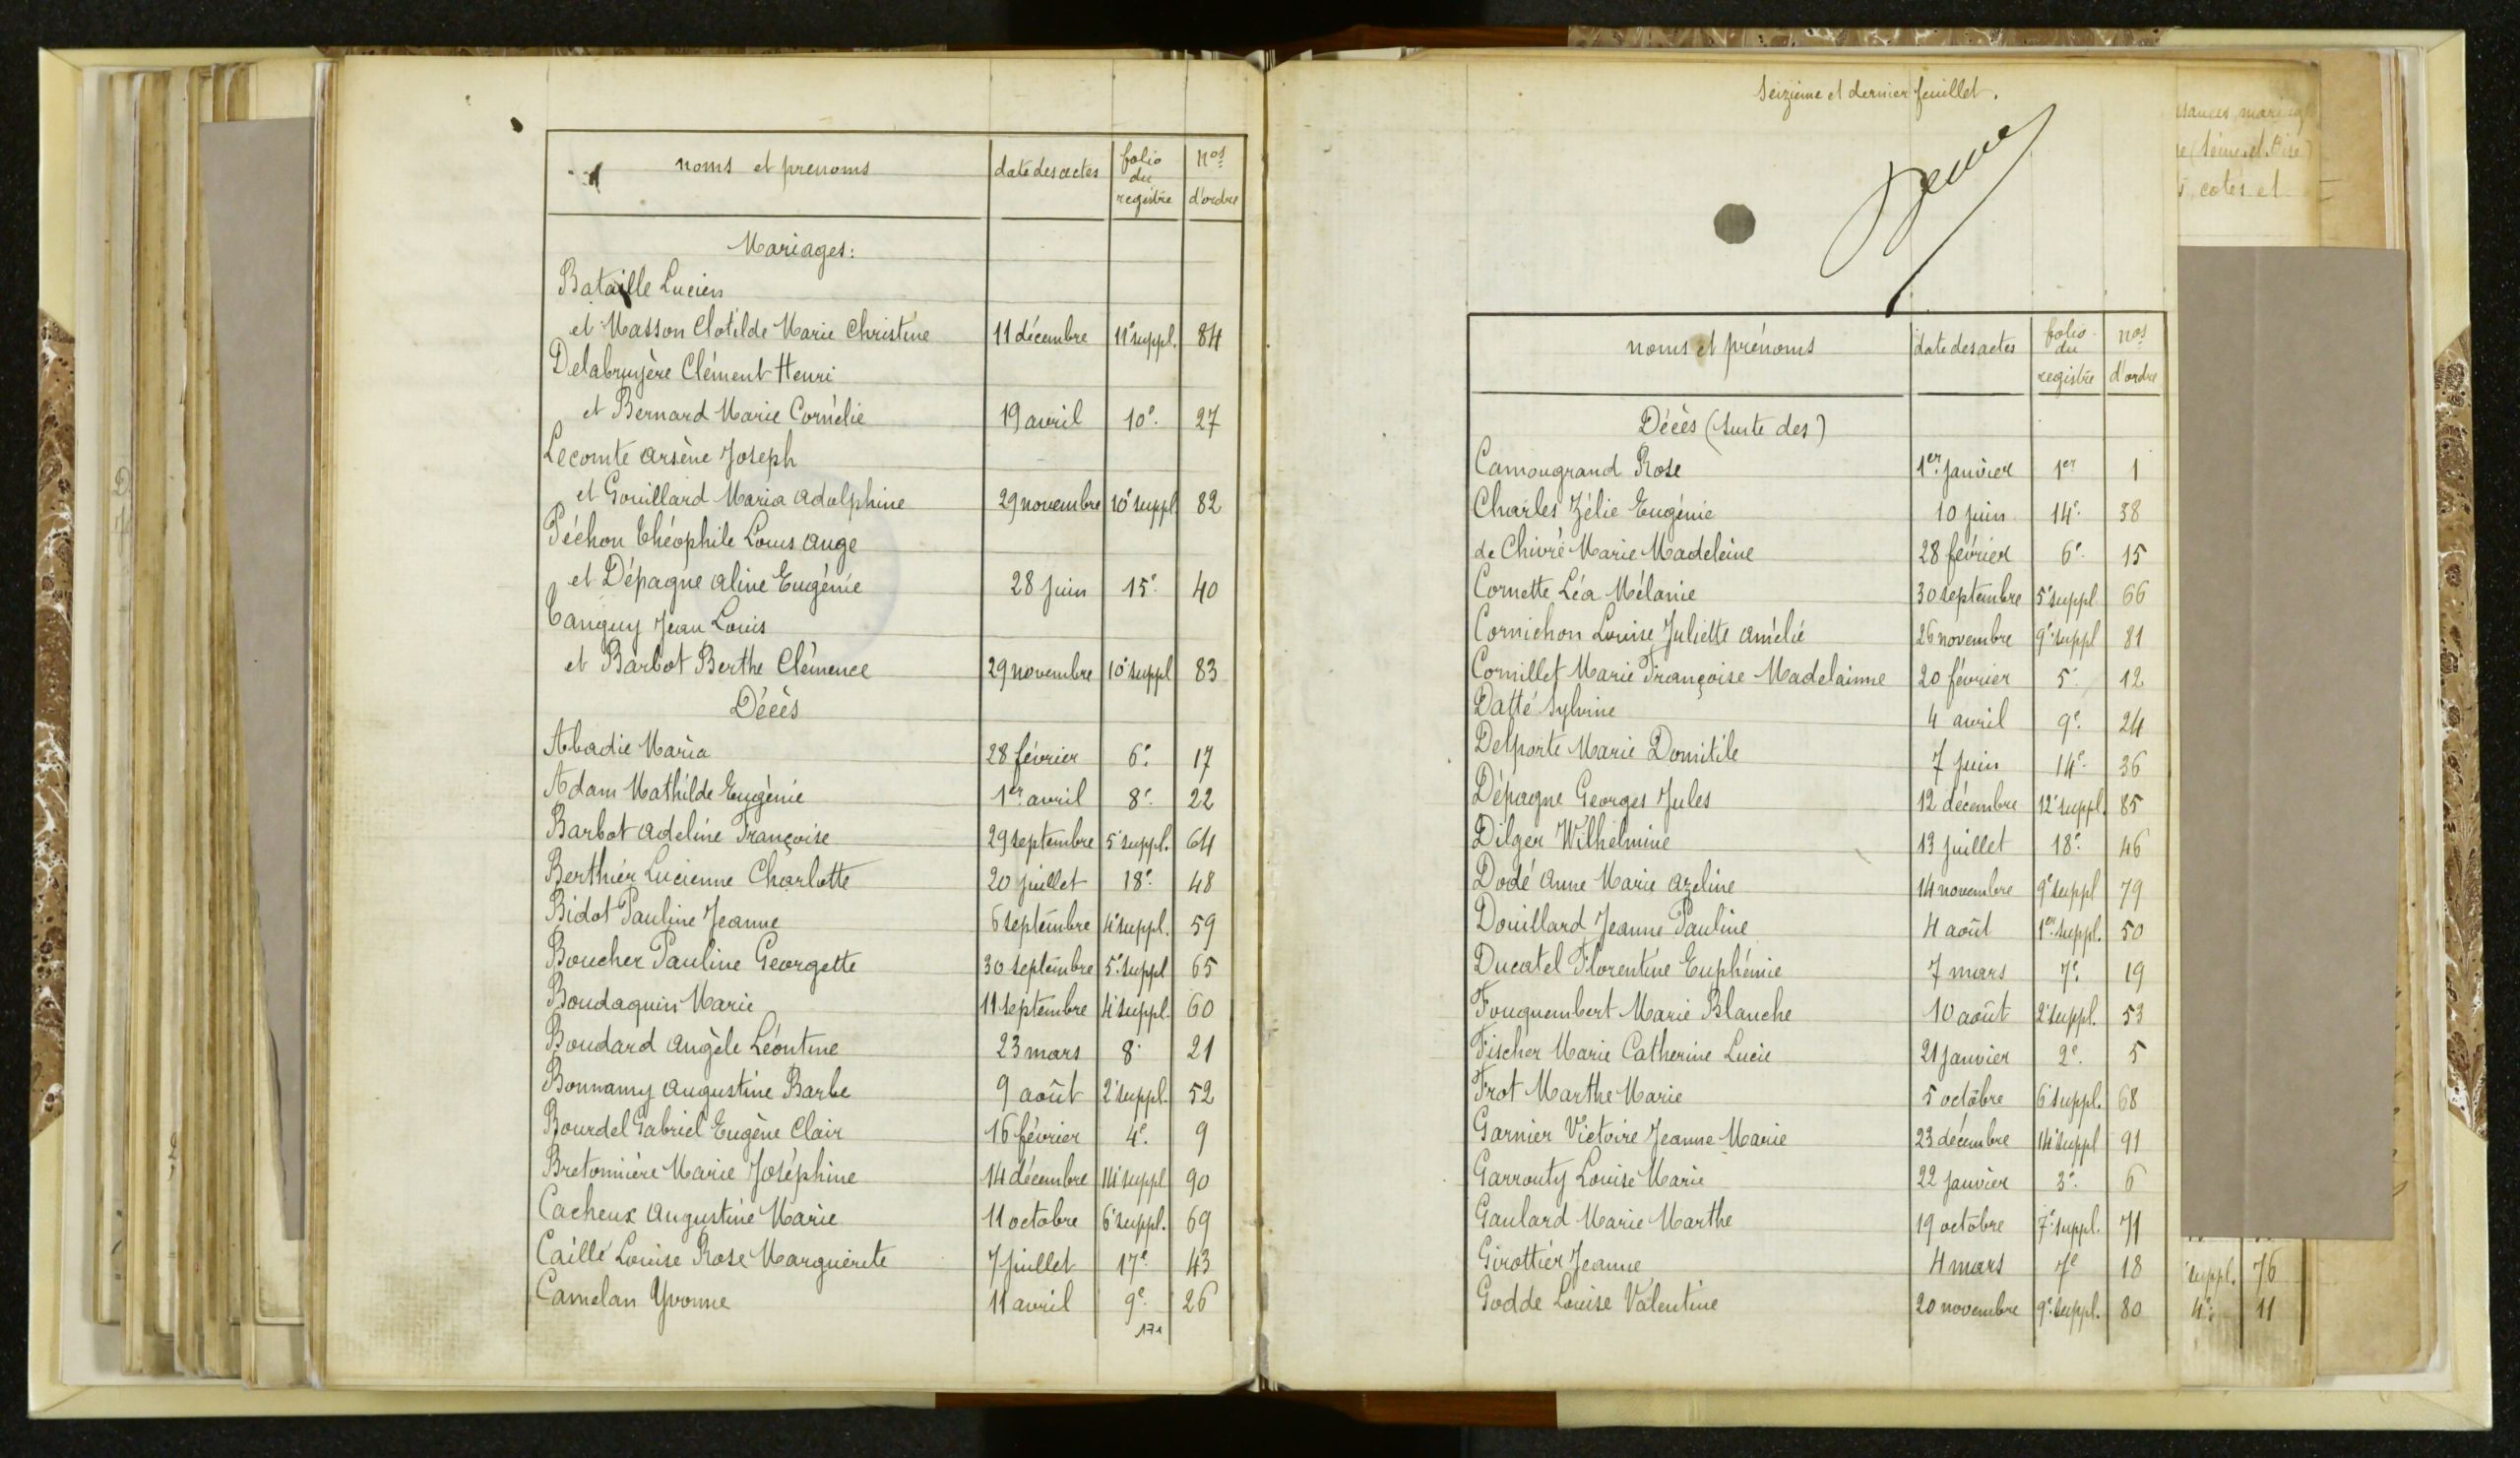 noms et prenoms | date des actes | folio du registre | nos d'ordre
Mariages:
Bataille Lucien
et Masson Clotilde Marie Christine | 11 décembre | 11e suppl. | 84
Delabruyère Clément Henri
et Bernard Marie Cornélie | 19 avril | 10e | 27
Lecomte Arsène Joseph
et Gouillard Maria Adolphine | 29 novembre | 10e suppl | 82
Péchon Théophile Louis Ange
et Dépagne Aline Eugénie | 28 juin | 15e | 40
Tanguy Jean Louis
et Barbot Berthe Clémence | 29 novembre | 10e suppl | 83
Décès
Abadie Maria | 28 février | 6e | 17
Adam Mathilde Eugénie | 1er avril | 8e | 22
Barbot Adeline Françoise | 29 septembre | 5e suppl. | 64
Berthier Lucienne Charlotte | 20 juillet | 18e | 48
Bidot Pauline Jeanne | 6 septembre | 4e suppl. | 59
Boucher Pauline Georgette | 30 septembre | 5e suppl | 65
Boudaquin Marie | 11 septembre | 4e suppl. | 60
Boudard Angèle Léontine | 23 mars | 8e | 21
Bonnamy Augustine Barbe | 9 août | 2e suppl. | 52
Bourdel Gabriel Eugène Clair | 16 février | 4e | 9
Bretonnière Marie Joséphine | 14 décembre | 14e suppl | 90
Cacheux Augustine Marie | 11 octobre | 6e suppl. | 69
Caillé Louise Rose Marguerite | 7 juillet | 17e | 43
Camelan Yvonne | 11 avril | 9e | 26
Seizième et dernier feuillet.
noms et prénoms | date des actes | folio du registre | nos d'ordre
Décès (suite des)
Camougrand Rose | 1er janvier | 1er | 1
Charles Zélie Eugénie | 10 juin | 14e | 38
de Chivré Marie Madeleine | 28 février | 6e | 15
Cornette Léa Mélanie | 30 septembre | 5e suppl | 66
Cornichon Louise Juliette Amélie | 26 novembre | 9e suppl | 81
Cornillet Marie Françoise Madelainne | 20 février | 5e | 12
Datté Sylvine | 4 avril | 9e | 24
Delporte Marie Domitile | 7 juin | 14e | 36
Dépagne Georges Jules | 12 décembre | 12e suppl. | 85
Dilger Wilhelmine | 13 juillet | 18e | 46
Dodé Anne Marie Azeline | 14 novembre | 9e suppl | 79
Douillard Jeanne Pauline | 4 août | 1er suppl. | 50
Ducatel Florentine Euphémie | 7 mars | 7e | 19
Fouquembert Marie Blanche | 10 août | 2e suppl. | 53
Fischer Marie Catherine Lucie | 21 janvier | 2e | 5
Frot Marthe Marie | 5 octobre | 6e suppl. | 68
Garnier Victoire Jeanne Marie | 23 décembre | 14e suppl | 91
Garrouty Louise Marie | 22 janvier | 3e | 6
Gaulard Marie Marthe | 19 octobre | 7e suppl. | 71
Girottier Jeanne | 4 mars | 7e | 18
Godde Louise Valentine | 20 novembre | 9e suppl. | 80
(Seine et Oise)
cotés et
suppl. | 76
4e | 11